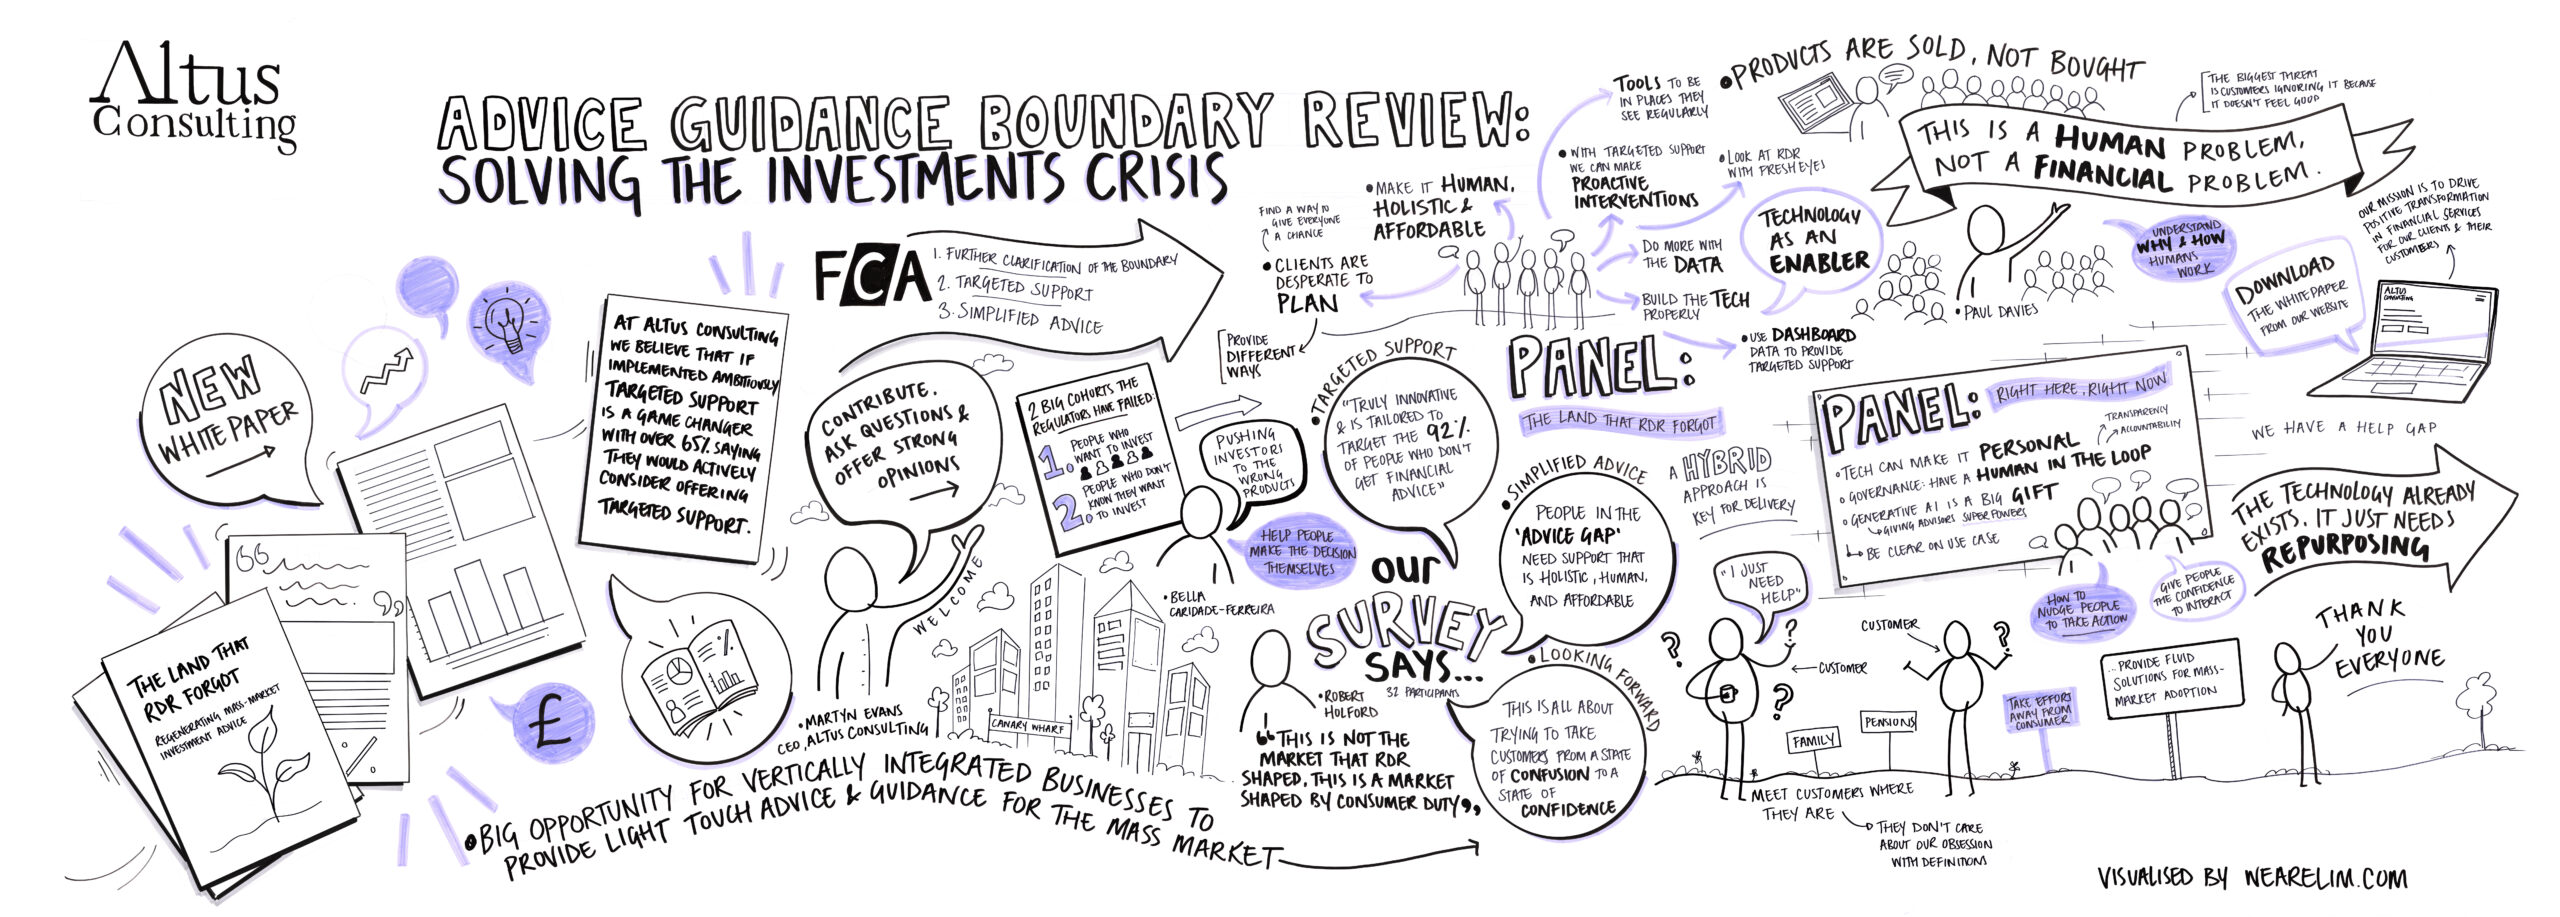 Altus
Consulting
ADVICE GUIDANCE BOUNDARY REVIEW:
SOLVING THE INVESTMENTS CRISIS
NEW
WHITE PAPER
THE LAND THAT
RDR FORGOT
REGENERATING MASS-MARKET
INVESTMENT ADVICE
£
AT ALTUS CONSULTING
WE BELIEVE THAT IF
IMPLEMENTED AMBITIOUSLY
TARGETED SUPPORT
IS A GAME CHANGER
WITH OVER 65% SAYING
THEY WOULD ACTIVELY
CONSIDER OFFERING
TARGETED SUPPORT.
%
FCA
1. FURTHER CLARIFICATION OF THE BOUNDARY
2. TARGETED SUPPORT
3. SIMPLIFIED ADVICE
CONTRIBUTE.
ASK QUESTIONS &
OFFER STRONG
OPINIONS
WELCOME
• MARTYN EVANS
CEO, ALTUS CONSULTING
CANARY WHARF
• BIG OPPORTUNITY FOR VERTICALLY INTEGRATED BUSINESSES TO
PROVIDE LIGHT TOUCH ADVICE & GUIDANCE FOR THE MASS MARKET
2 BIG COHORTS THE
REGULATORS HAVE FAILED:
1. PEOPLE WHO
WANT TO INVEST
2. PEOPLE WHO DON'T
KNOW THEY WANT
TO INVEST
PUSHING
INVESTORS
TO THE
WRONG
PRODUCTS
HELP PEOPLE
MAKE THE DECISION
THEMSELVES
• BELLA
CARIDADE-FERREIRA
OUR
SURVEY
SAYS...
32 PARTICIPANTS
• TARGETED SUPPORT
"TRULY INNOVATIVE
& IS TAILORED TO
TARGET THE 92%
OF PEOPLE WHO DON'T
GET FINANCIAL
ADVICE"
• SIMPLIFIED ADVICE
PEOPLE IN THE
'ADVICE GAP'
NEED SUPPORT THAT
IS HOLISTIC, HUMAN,
AND AFFORDABLE
• LOOKING FORWARD
THIS IS ALL ABOUT
TRYING TO TAKE
CUSTOMERS FROM A STATE
OF CONFUSION TO A
STATE OF
CONFIDENCE
• ROBERT
HOLFORD
"THIS IS NOT THE
MARKET THAT RDR
SHAPED, THIS IS A MARKET
SHAPED BY CONSUMER DUTY"
PANEL:
THE LAND THAT RDR FORGOT
FIND A WAY TO
GIVE EVERYONE
A CHANCE
• CLIENTS ARE
DESPERATE TO
PLAN
PROVIDE
DIFFERENT
WAYS
• MAKE IT HUMAN,
HOLISTIC &
AFFORDABLE
TOOLS TO BE
IN PLACES THEY
SEE REGULARLY
• WITH TARGETED SUPPORT
WE CAN MAKE
PROACTIVE
INTERVENTIONS
• LOOK AT RDR
WITH FRESH EYES
DO MORE WITH
THE DATA
BUILD THE TECH
PROPERLY
• USE DASHBOARD
DATA TO PROVIDE
TARGETED SUPPORT
TECHNOLOGY
AS AN
ENABLER
A HYBRID
APPROACH IS
KEY FOR DELIVERY
• PRODUCTS ARE SOLD, NOT BOUGHT
THE BIGGEST THREAT
IS CUSTOMERS IGNORING IT BECAUSE
IT DOESN'T FEEL GOOD
THIS IS A HUMAN PROBLEM,
NOT A FINANCIAL PROBLEM.
• PAUL DAVIES
UNDERSTAND
WHY & HOW
HUMANS
WORK
OUR MISSION IS TO DRIVE
POSITIVE TRANSFORMATION
IN FINANCIAL SERVICES
FOR OUR CLIENTS & THEIR
CUSTOMERS
DOWNLOAD
THE WHITEPAPER
FROM OUR WEBSITE
ALTUS
CONSULTING
PANEL:
RIGHT HERE, RIGHT NOW
TRANSPARENCY
ACCOUNTABILITY
• TECH CAN MAKE IT PERSONAL
• GOVERNANCE: HAVE A HUMAN IN THE LOOP
• GENERATIVE AI IS A BIG GIFT
GIVING ADVISORS SUPER POWERS
BE CLEAR ON USE CASE
HOW TO
NUDGE PEOPLE
TO TAKE ACTION
GIVE PEOPLE
THE CONFIDENCE
TO INTERACT
WE HAVE A HELP GAP
THE TECHNOLOGY ALREADY
EXISTS. IT JUST NEEDS
REPURPOSING
"I JUST
NEED
HELP"
?
?
?
CUSTOMER
CUSTOMER
?
FAMILY
PENSIONS
TAKE EFFORT
AWAY FROM
CONSUMER
...PROVIDE FLUID
SOLUTIONS FOR MASS-
MARKET ADOPTION
THANK
YOU
EVERYONE
MEET CUSTOMERS WHERE
THEY ARE
THEY DON'T CARE
ABOUT OUR OBSESSION
WITH DEFINITIONS
VISUALISED BY WEARELIM.COM